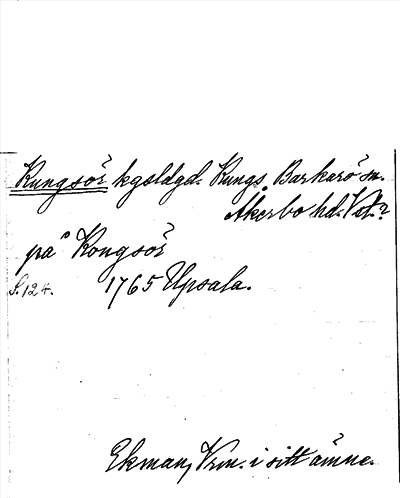 Kungsör kgsldgd. Kungs Barkarö sn.
Åkerbo hd. Vstm.?
på Kongsör
S. 124. 1765 Upsala.
Ekman, Vrm. i sitt ämne.